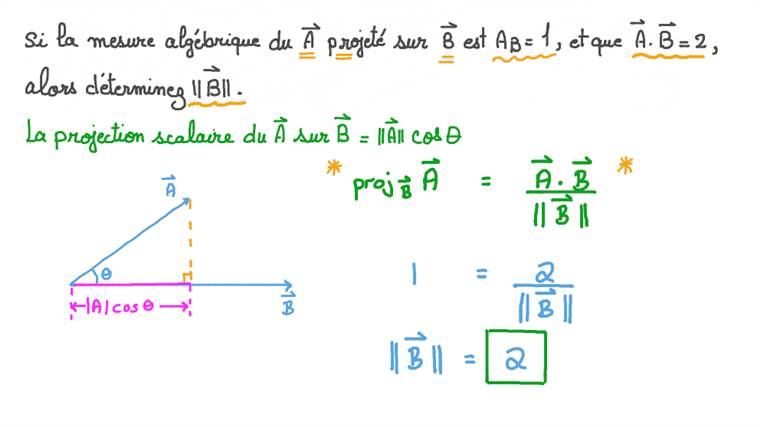 Si la mesure algébrique du A⃗ projeté sur B⃗ est A_B = 1, et que A⃗ . B⃗ = 2,
alors déterminez ||B⃗||.
La projection scalaire du A⃗ sur B⃗ = ||A⃗|| cos θ
* proj_B⃗ A⃗ = A⃗ . B⃗ / ||B⃗|| *
A⃗
θ
B⃗
|A| cos θ
1 = 2 / ||B⃗||
||B⃗|| = 2